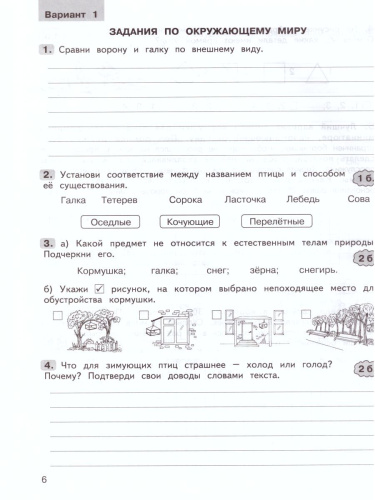 Вариант 1
ЗАДАНИЯ ПО ОКРУЖАЮЩЕМУ МИРУ
1. Сравни ворону и галку по внешнему виду.
2. Установи соответствие между названием птицы и способом
её существования.
1 б.
Галка Тетерев Сорока Ласточка Лебедь Сова
Оседлые Кочующие Перелётные
3. а) Какой предмет не относится к естественным телам природы
Подчеркни его.
2 б
Кормушка; галка; снег; зёрна; снегирь.
б) Укажи ✓ рисунок, на котором выбрано неподходящее место дл
обустройства кормушки.
4. Что для зимующих птиц страшнее – холод или голод?
Почему? Подтверди свои доводы словами текста.
2 б
6